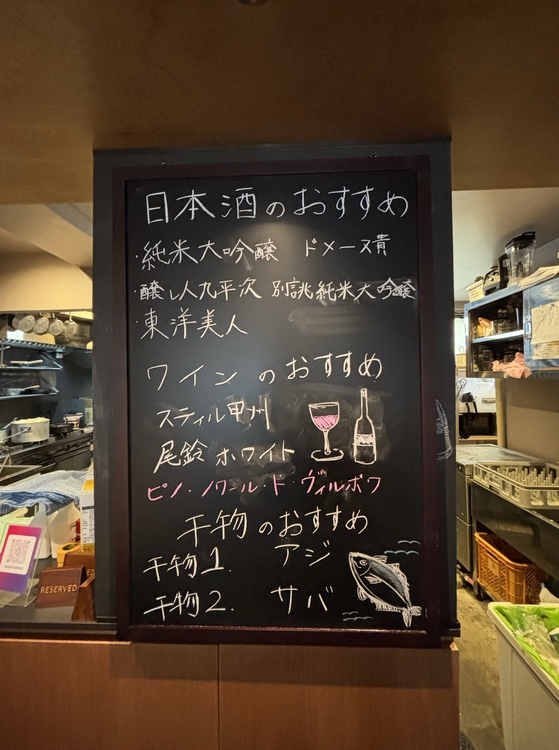 日本酒のおすすめ
・純米大吟醸 ドメーヌ貴
・醸し人九平次 別誂純米大吟醸
東洋美人
ワインのおすすめ
スティル甲州
尾鈴 ホワイト
ピノ・ノワール・ド・ヴィルボワ
干物のおすすめ
干物1. アジ
干物2. サバ
RESERVED